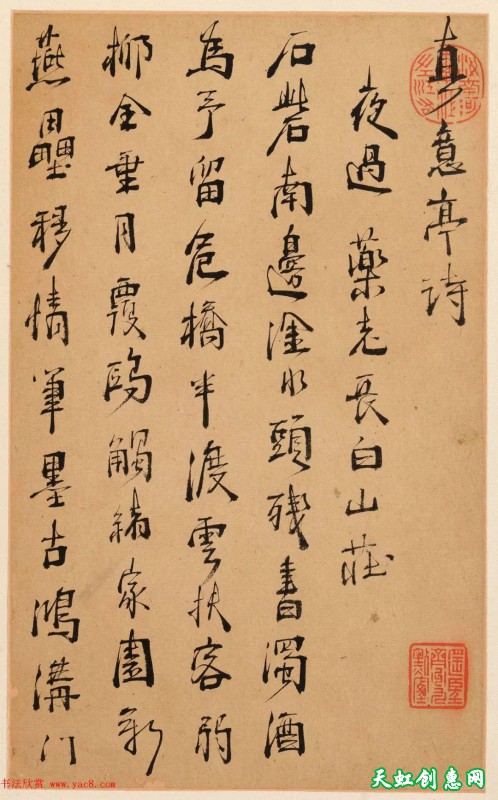 真意亭诗
夜過藥老長白山莊
石砦南邊滏水頭殘書濁酒
為予留危橋半渡雲扶客弱
柳全垂月覆鷗觸緒家園新
燕壘移情筆墨古鴻溝門
书法欣赏 www.yac8.com
天虹创意网